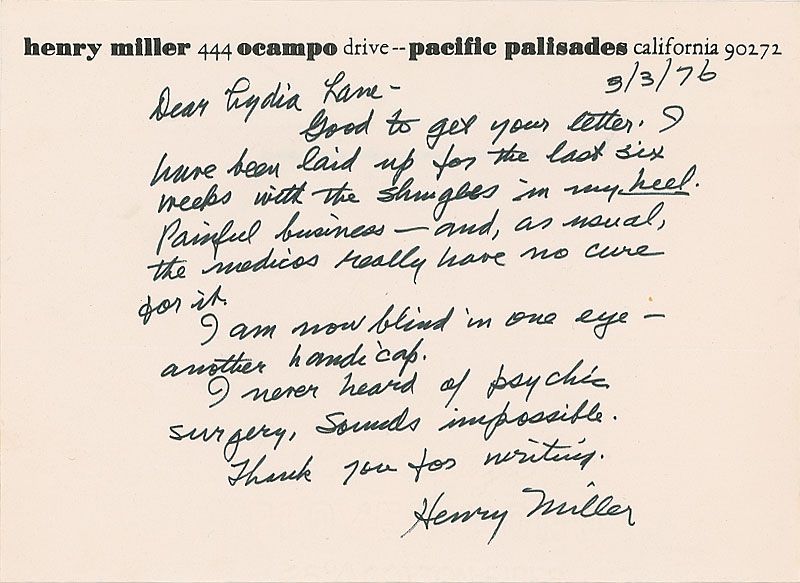 henry miller 444 ocampo drive--pacific palisades california 90272
3/3/76
Dear Lydia Lane-
Good to get your letter. I
have been laid up for the last six
weeks with the shingles in my heel.
Painful business — and, as usual,
the medicos really have no cure
for it.
I am now blind in one eye —
another handicap.
I never heard of psychic
surgery, Sounds impossible.
Thank you for writing.
Henry Miller